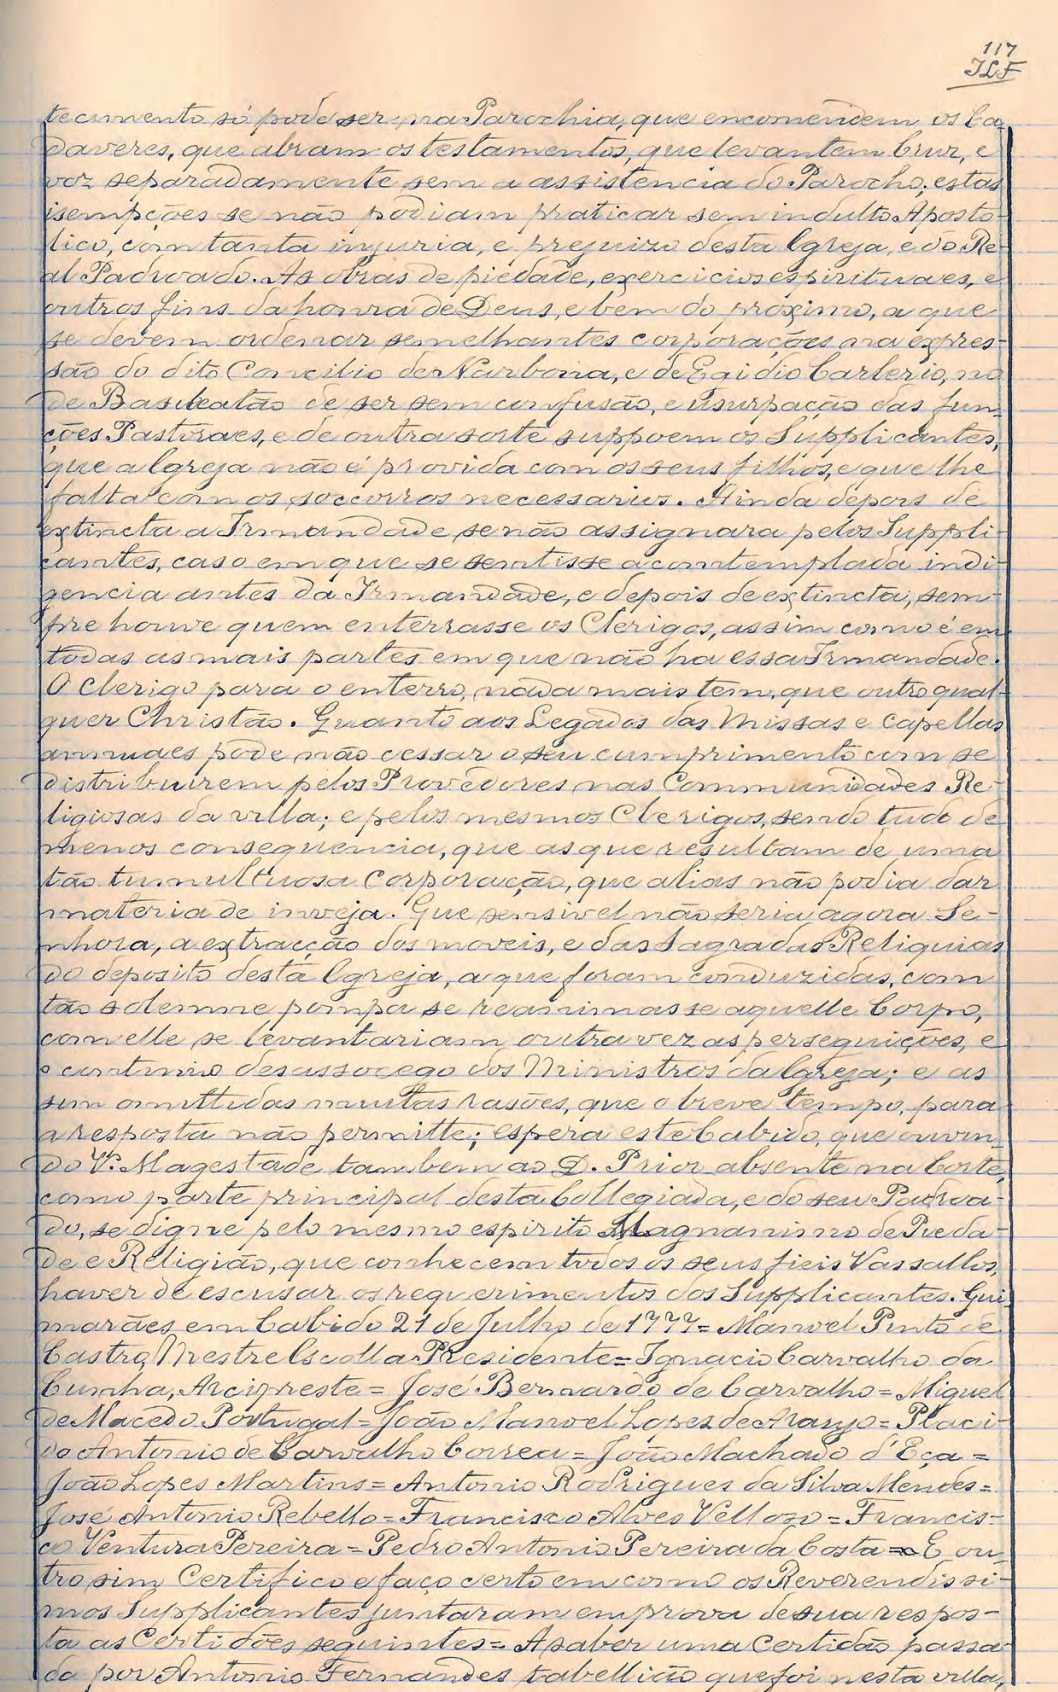 117
JLF
tecumento só pode ser na Parochia, que encomendem os Ca-
daveres, que abram os testamentos, que levantem Cruz, e
voz separadamente sem a assistencia do Parocho; estas
isempções se não podiam praticar sem indulto Aposto-
lico, com tanta injuria, e prejuizo desta Igreja, e do Re-
al Padroado. As obras de piedade, exercicios espirituaes, e
outros fins da honra de Deus, e bem do proximo, a que
se devem ordenar semelhantes corporações na expres-
são do dito Concilio de Narbona, e de Egidio Carlerio, no
de Basilea tão de ser sem confusão, e usurpação das fun-
ções Pastoraes, e de outra sorte suppoem os Supplicantes,
que a Igreja não é provida com os seus filhos, e que lhe
falta com os soccorros necessarios. Ainda depois de
extincta a Irmandade, se não assignara pelos Suppli-
cantes, caso em que se sentisse a contemplada indi-
gencia antes da Irmandade, e depois de extincta, sem-
pre houve quem enterrasse os Clerigos, assim como é em
todas as mais partes em que não ha essa Irmandade.
O clerigo para o enterro, nada mais tem, que outro qual-
quer Christão. Quanto aos Legados das Missas e capellas
annuaes pode não cessar o seu cumprimento com se
distribuirem pelos Provedores nas Communidades Re-
ligiosas da villa; e pelos mesmos Clerigos, sendo tudo de
menos consequencia, que as que resultam de uma
tão tumultuosa Corporação, que alias não podia dar
materia de inveja. Que sensivel não seria agora Se-
nhora, a extracção dos moveis, e das Sagradas Reliquias
do deposito desta Igreja, a que foram conduzidas, com
tão solemne pompa se reanimasse aquelle Corpo,
com elle se levantariam outra vez as perseguições, e
o continuo desassocego dos Ministros da Igreja; e as
sim omittidas muitas rasões, que o breve tempo, para
a resposta não permitte; espera este Cabido, que ouvin-
do V.ª Magestade tambem ao D. Prior absente na Corte,
como parte principal desta Collegiada, e do seu Padroa-
do, se digne pelo mesmo espirito Magnanimo de Pieda-
de e Religião, que conhecem todos os seus fieis Vassallos,
haver de escusar os requerimentos dos Supplicantes. Gui-
marães em Cabido 21 de Julho de 1777 = Manoel Pinto de
Castro, Mestre Escolla Presidente = Ignacio Carvalho da
Cunha, Arcipreste = José Bernardo de Carvalho = Miguel
de Macedo Portugal = João Manoel Lopes de Araujo = Placi-
do Antonio de Carvalho Correa = João Machado d'Eça =
João Lopes Martins = Antonio Rodrigues da Silva Mendes =
José Antonio Rebello = Francisco Alves Velloso = Francis-
co Ventura Pereira = Pedro Antonio Pereira da Costa = E ou-
tro sim Certifico e faço certo em como os Reverendissi-
mos Supplicantes juntaram em prova de sua respos-
ta as Certidões seguintes = A saber uma Certidão passa-
da por Antonio Fernandes tabellião que foi nesta villa,